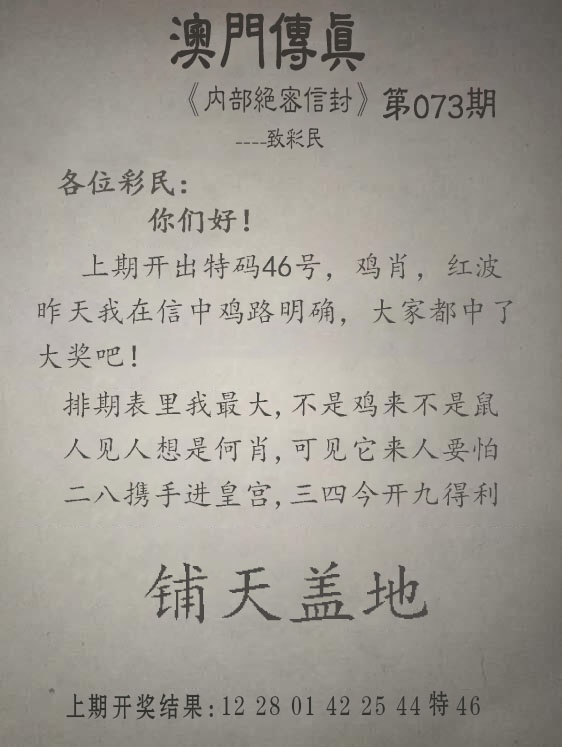 澳門傳眞
《内部絕密信封》第073期
----致彩民
各位彩民：
你们好！
上期开出特码46号，鸡肖，红波
昨天我在信中鸡路明确，大家都中了
大奖吧！
排期表里我最大,不是鸡来不是鼠
人见人想是何肖,可见它来人要怕
二八携手进皇宫,三四今开九得利
铺天盖地
上期开奖结果:12 28 01 42 25 44特46